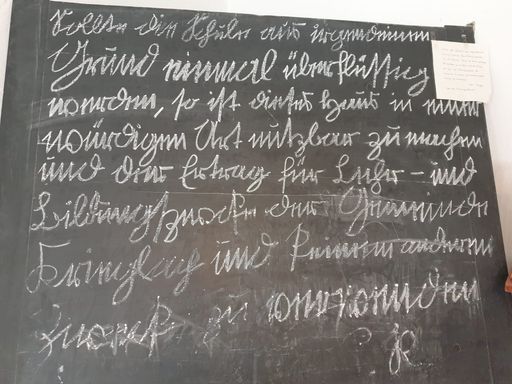 Sollte die Schule aus irgendeinem
Grund einmal überflüssig
werden, so ist dieses Haus in einer
würdigen Art nutzbar zu machen
und der Ertrag für Lehr- und
Bildungszwecke der Gemeinde
und keinem anderen
Zwecke zu verwenden